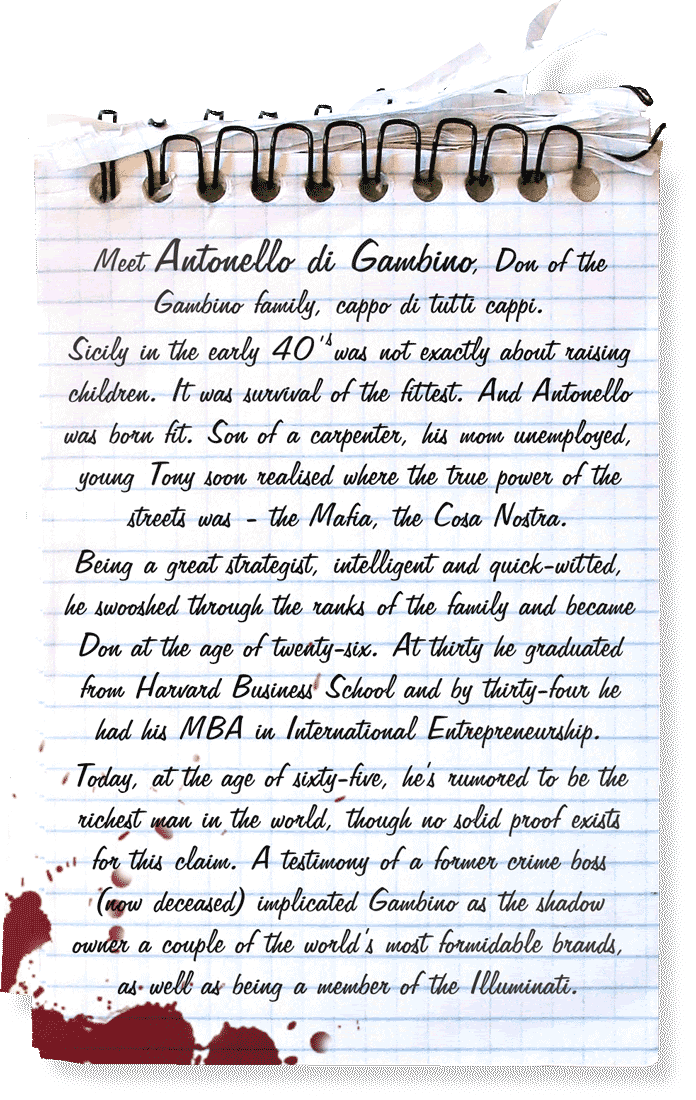 Meet Antonello di Gambino, Don of the
Gambino family, cappo di tutti cappi.
Sicily in the early 40's was not exactly about raising
children. It was survival of the fittest. And Antonello
was born fit. Son of a carpenter, his mom unemployed,
young Tony soon realised where the true power of the
streets was - the Mafia, the Cosa Nostra.
Being a great strategist, intelligent and quick-witted,
he swooshed through the ranks of the family and became
Don at the age of twenty-six. At thirty he graduated
from Harvard Business School and by thirty-four he
had his MBA in International Entrepreneurship.
Today, at the age of sixty-five, he's rumored to be the
richest man in the world, though no solid proof exists
for this claim. A testimony of a former crime boss
(now deceased) implicated Gambino as the shadow
owner a couple of the world's most formidable brands,
as well as being a member of the Illuminati.